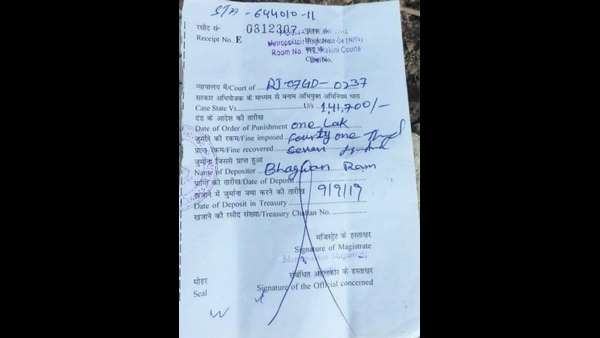 STA - 644010-11
रसीद सं० 0312307
Receipt No. E
Room No.
न्यायालय में/Court of RJ-07GD-0237
सरकार अभियोजक के माध्यम से बनाम अभियुक्त अधिनियम धारा
Case State Vs U/s 1,41,700/-
दंड के आदेश की तारीख
Date of Order of Punishment one Lak
जुर्माने की रकम/Fine imposed fourty one
प्राप्त रकम/Fine recovered Seven
जुर्माना जिससे प्राप्त हुआ
Name of Depositor Bhagwan Ram
प्राप्ति की तारीख/Date of Deposit
खजाने में जुर्माना जमा करने की तारीख 9/9/19
Date of Deposit in Treasury
खजाने की रसीद संख्या/Treasury Challan No.
मजिस्ट्रेट के हस्ताक्षर
Signature of Magistrate
संबंधित अहलकार के हस्ताक्षर
मोहर Signature of the Official concerned
Seal